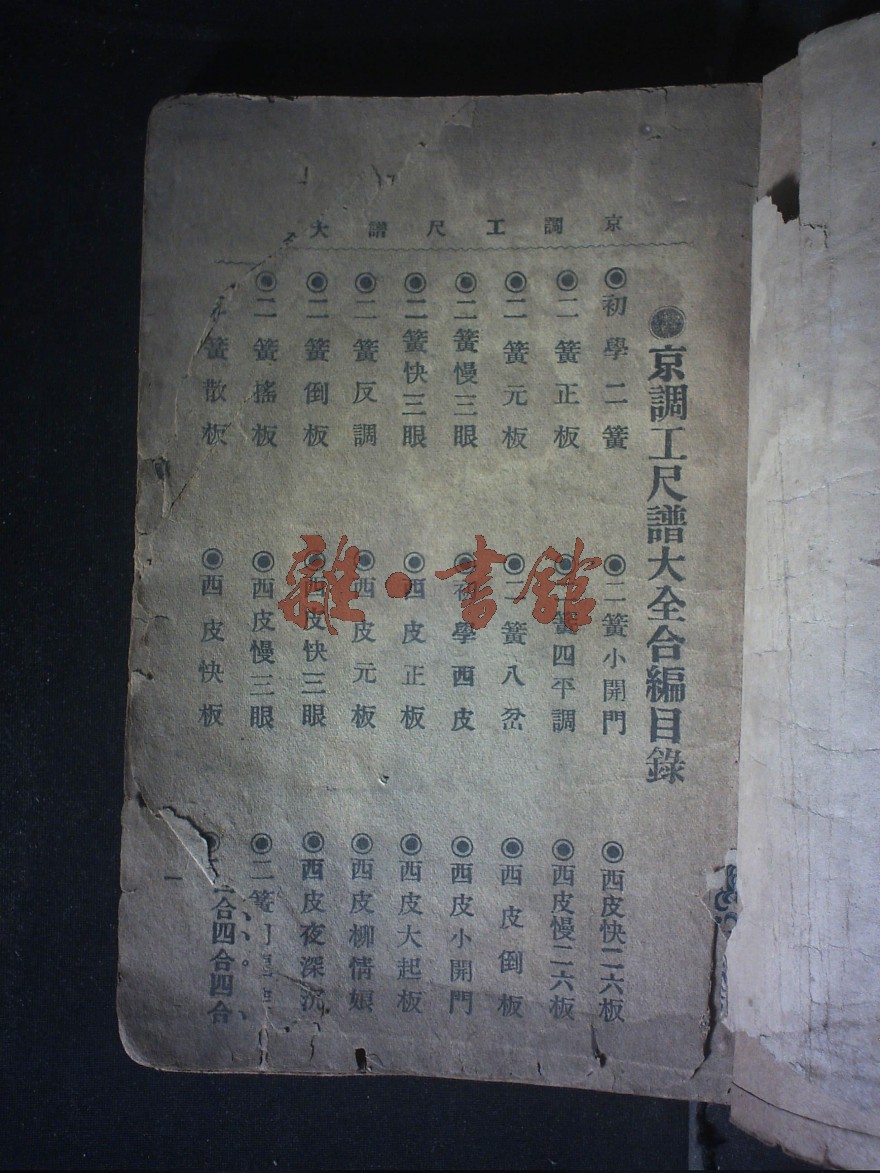 京調工尺譜大
京調工尺譜大全合編目錄
◉初學二簧
◉二簧正板
◉二簧元板
◉二簧慢三眼
◉二簧快三眼
◉二簧反調
◉二簧倒板
◉二簧搖板
簧散板
◉二簧小開門
◉二簧四平調
◉二簧八岔
◉初學西皮
◉西皮正板
◉西皮元板
◉西皮快三眼
◉西皮慢三眼
◉西皮快板
◉西皮快二六板
◉西皮慢二六板
◉西皮倒板
◉西皮小開門
◉西皮大起板
◉西皮柳情娘
◉西皮夜深沉
◉二簧
合四合四合
一
雜·書館